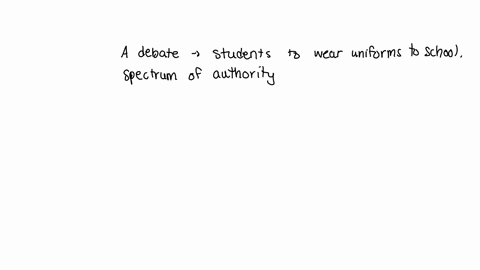 A debate → students to wear uniforms to school,
spectrum of authority